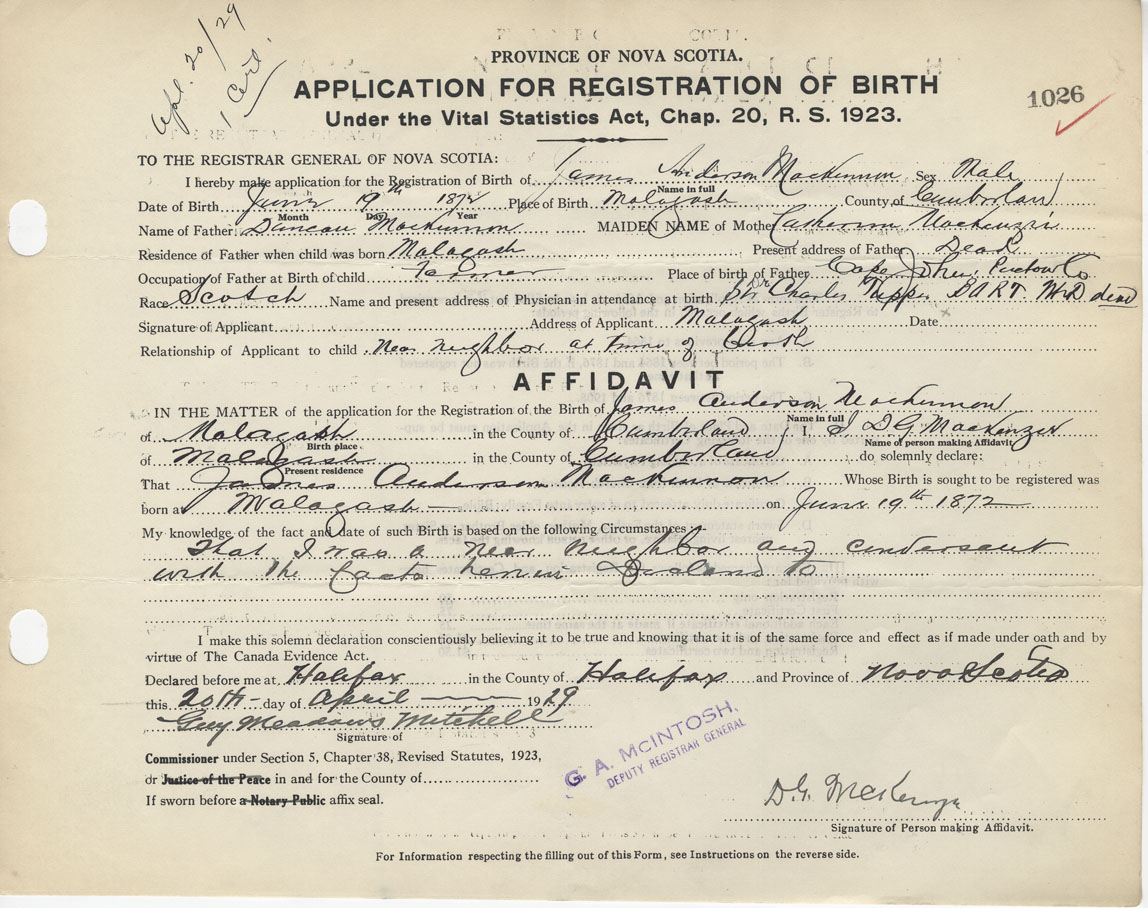 Apl. 20/29
1 Cert.
PROVINCE OF NOVA SCOTIA.
APPLICATION FOR REGISTRATION OF BIRTH
1026
Under the Vital Statistics Act, Chap. 20, R. S. 1923.
TO THE REGISTRAR GENERAL OF NOVA SCOTIA:
I hereby make application for the Registration of Birth of James Anderson MacKinnon Sex Male
Name in full
Date of Birth June 19th 1872 Place of Birth Malagash County of Cumberland
Month Day Year
Name of Father Duncan MacKinnon MAIDEN NAME of Mother Catherine MacKenzie
Residence of Father when child was born Malagash Present address of Father Dead
Occupation of Father at Birth of child Farmer Place of birth of Father Cape John Pictou Co
Race Scotch Name and present address of Physician in attendance at birth Sir Dr Charles Tupper BART M.D dead
Signature of Applicant Address of Applicant Malagash Date
Relationship of Applicant to child Near neighbor at time of birth
AFFIDAVIT
IN THE MATTER of the application for the Registration of the Birth of James Anderson MacKinnon
Name in full
of Malagash in the County of Cumberland I, I D G MacKenzie
Birth place. Name of person making Affidavit
of Malagash in the County of Cumberland do solemnly declare:
Present residence
That James Anderson MacKinnon Whose Birth is sought to be registered was
born at Malagash on June 19th 1872
My knowledge of the fact and date of such Birth is based on the following Circumstances:
That I was a near neighbor and
with the facts herein Declared to
I make this solemn declaration conscientiously believing it to be true and knowing that it is of the same force and effect as if made under oath and by
virtue of The Canada Evidence Act.
Declared before me at Halifax in the County of Halifax and Province of Nova Scotia
this 20th day of April 1929
Guy Meadows Mitchell
Signature of
Commissioner under Section 5, Chapter 38, Revised Statutes, 1923,
or Justice of the Peace in and for the County of
If sworn before a Notary Public affix seal.
G. A. MCINTOSH.
DEPUTY REGISTRAR GENERAL
D.G. McKenzie
Signature of Person making Affidavit.
For Information respecting the filling out of this Form, see Instructions on the reverse side.